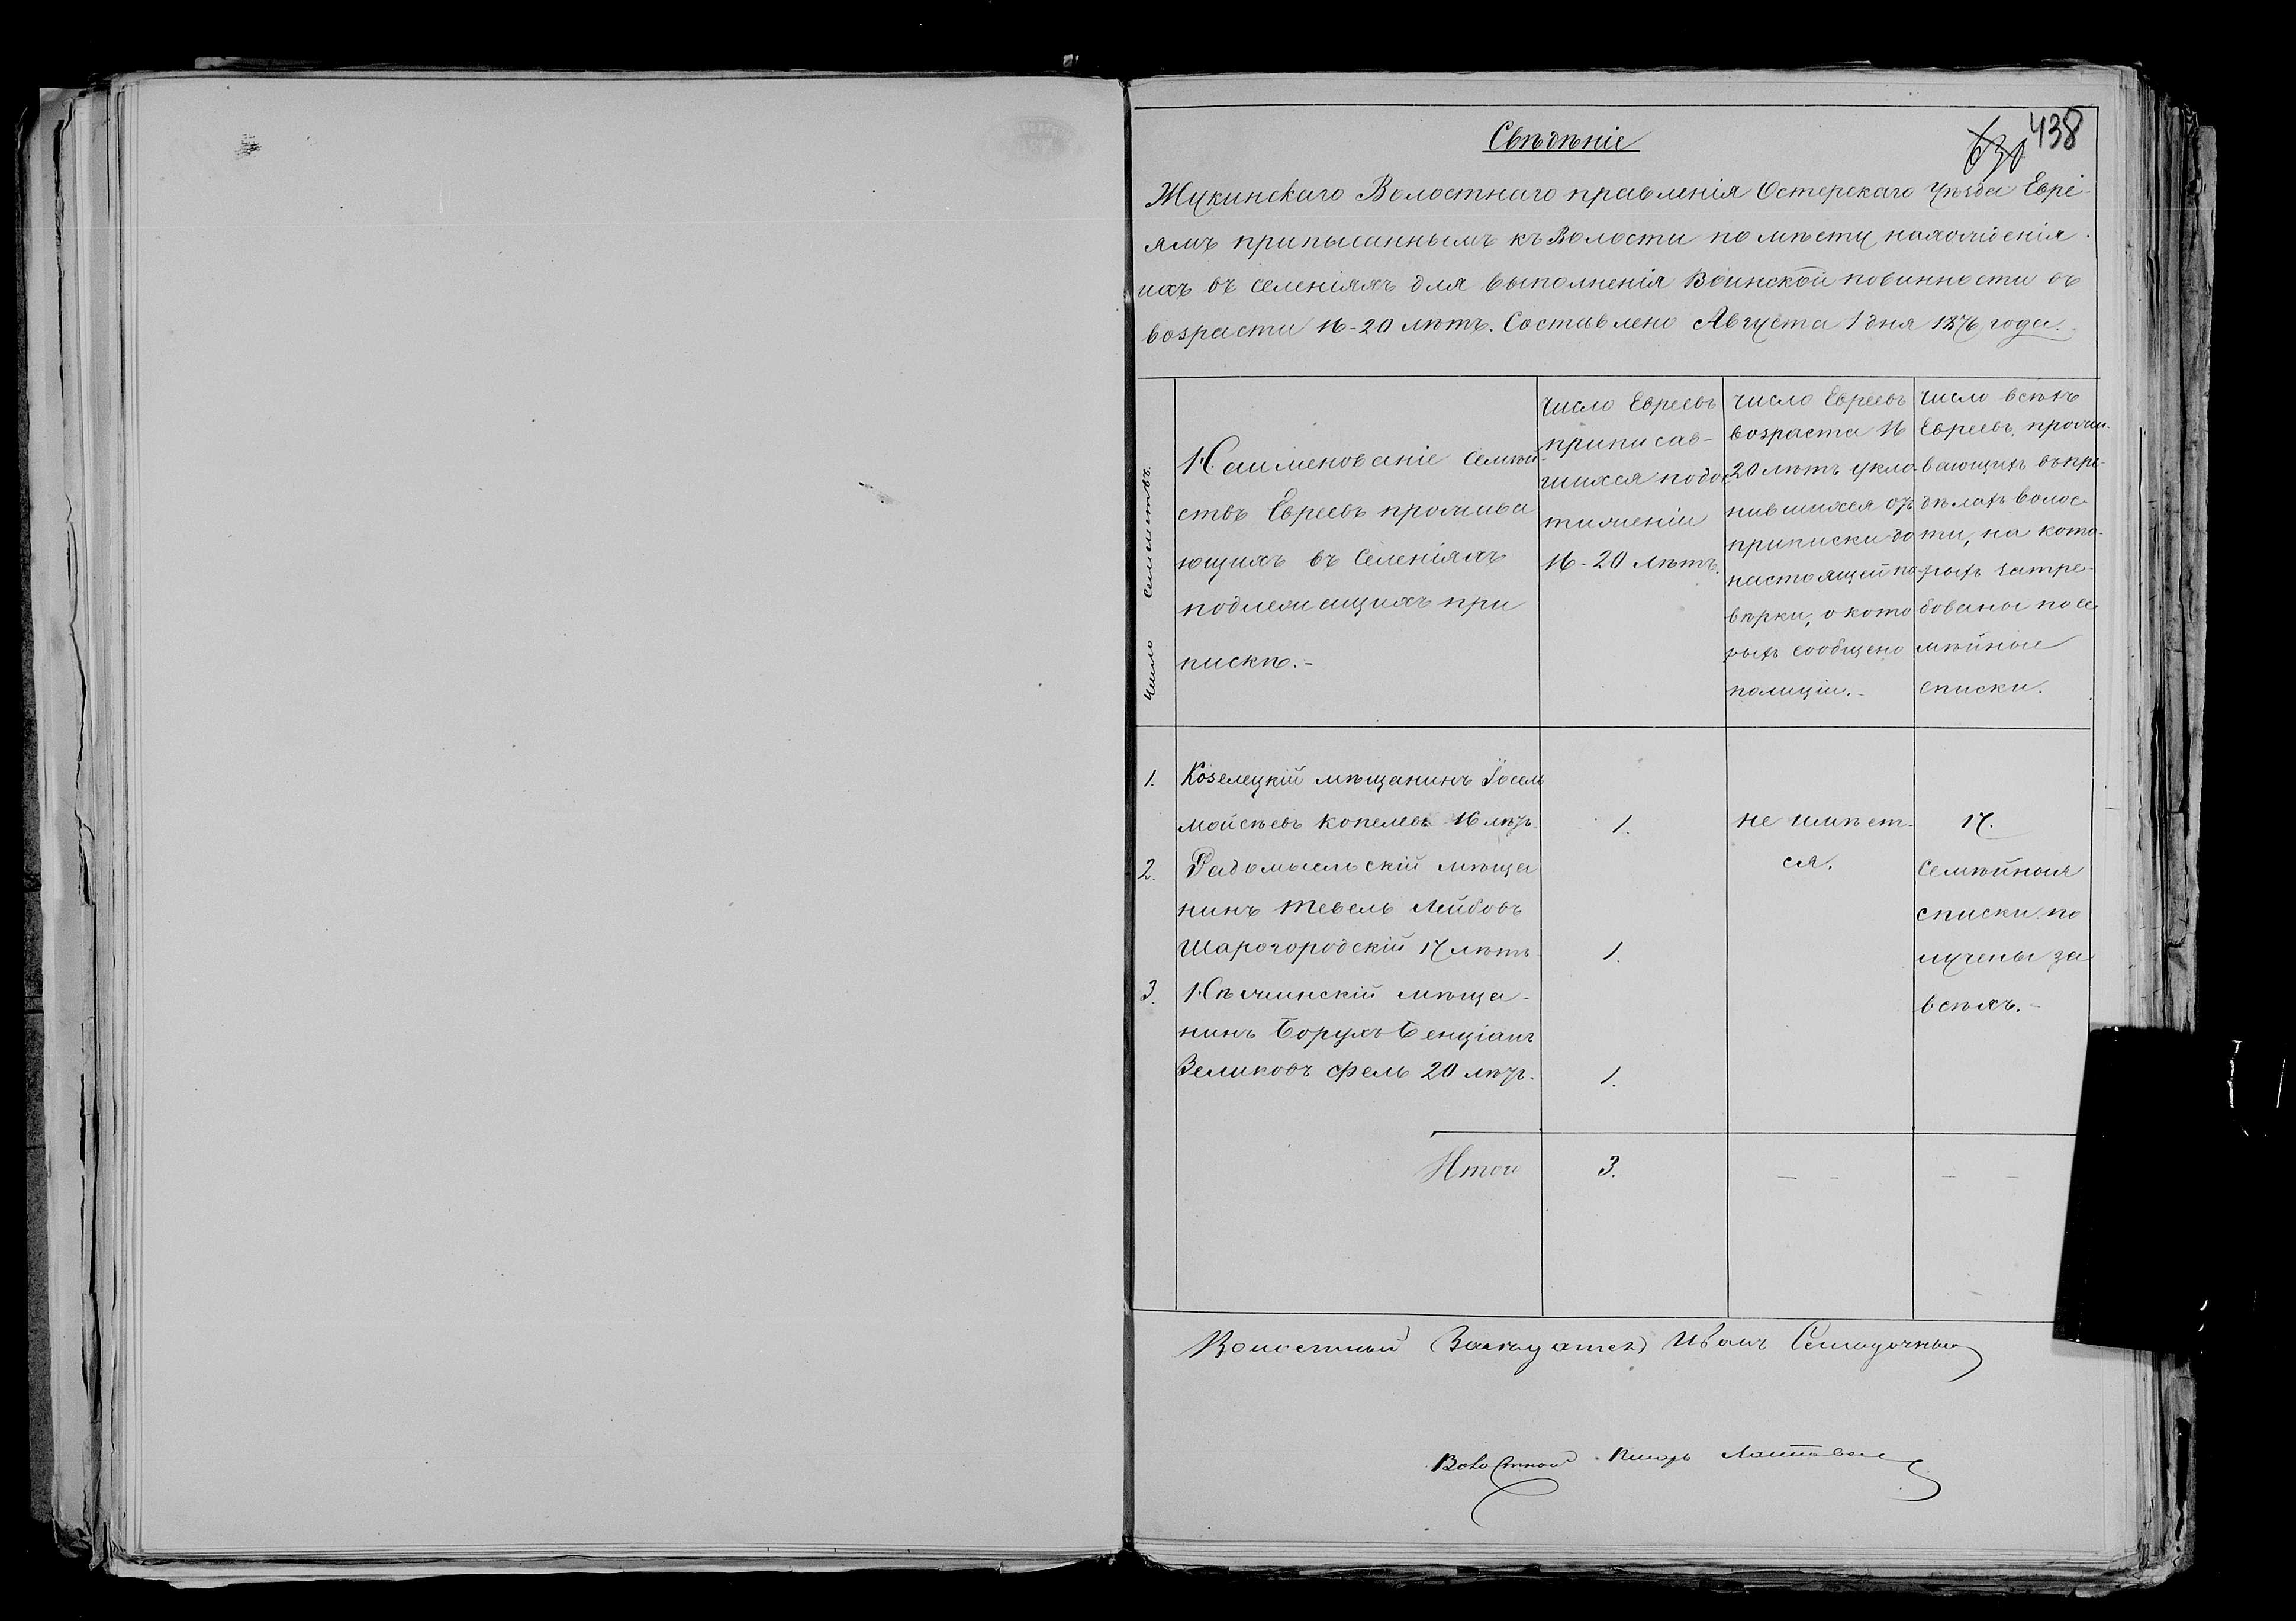 438
630
Свѣдѣніе
Жукинскаго Волостнаго правленія Остерскаго Уѣзда Еврі-
ямъ приписаннымъ къ Волости по мѣсту нахожденія
ихъ въ селеніяхъ для выполненія Воинской повинности въ
возрасти 16-20 лѣтъ. Составлено Августа 1 дня 1876 года.
Число Семействъ.
Наименованіе Семѣй-
ствъ Евреевъ прожива
ющихъ въ Селеніяхъ
подлежащихъ при
пискѣ.-
Число Евреевъ
приписав-
шихся по дос
тиженіи
16-20 лѣтъ.
Число Евреевъ
возраста 16
20 лѣтъ укло-
нившихся отъ
приписки до
настоящей по-
вѣрки, о кото
рыхъ сообщено
полиціи.-
Число всѣхъ
Евреевъ, прожи-
вающихъ въ пре-
дѣлахъ волос-
ти, на кото-
рыхъ затре-
бованы посе
мѣйные
списки.
1. Козелецкій мѣщанинъ Іосель
Мойсѣевъ Копелевъ 16 лѣтъ. 1. не имѣет- 17.
2. Радомысльскій мѣща ся. Семѣйныя
нинъ Тевель Лейбовъ списки по
Шарогородскій 17 лѣтъ 1. лучены за
3. Нѣжинскій мѣща- всѣхъ.-
нинъ Борухъ Бенціанъ
Зеликовъ Фель 20 лѣтъ. 1.
Итого 3. — — — —
Волостный Засѣдатель Иванъ
Волостной Писарь